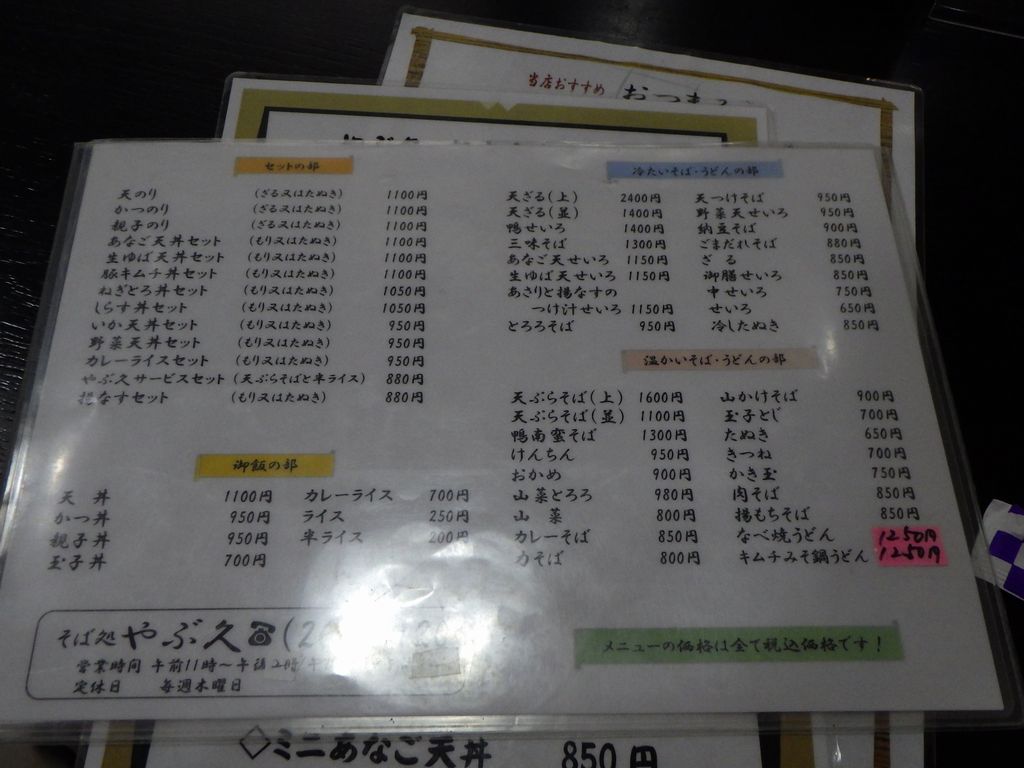 当店おすすめ
セットの部
天のり (ざる又はたぬき) 1100円
かつのり (ざる又はたぬき) 1100円
親子のり (ざる又はたぬき) 1100円
あなご天丼セット (もり又はたぬき) 1100円
生ゆば天丼セット (もり又はたぬき) 1100円
豚キムチ丼セット (もり又はたぬき) 1100円
ねぎとろ丼セット (もり又はたぬき) 1050円
しらす丼セット (もり又はたぬき) 1050円
いか天丼セット (もり又はたぬき) 950円
野菜天丼セット (もり又はたぬき) 950円
カレーライスセット (もり又はたぬき) 950円
やぶ久サービスセット (天ぷらそばと半ライス) 880円
揚なすセット (もり又はたぬき) 880円
御飯の部
天丼 1100円 カレーライス 700円
かつ丼 950円 ライス 250円
親子丼 950円 半ライス 200円
玉子丼 700円
冷たいそば・うどんの部
天ざる(上) 2400円 天つけそば 950円
天ざる(並) 1400円 野菜天せいろ 950円
鴨せいろ 1400円 納豆そば 900円
三味そば 1300円 ごまだれそば 880円
あなご天せいろ 1150円 ざる 850円
生ゆば天せいろ 1150円 御膳せいろ 850円
あさりと揚なすの 中せいろ 750円
つけ汁せいろ 1150円 せいろ 650円
とろろそば 950円 冷したぬき 850円
温かいそば・うどんの部
天ぷらそば(上) 1600円 山かけそば 900円
天ぷらそば(並) 1100円 玉子とじ 700円
鴨南蛮そば 1300円 たぬき 650円
けんちん 950円 きつね 700円
おかめ 900円 かき玉 750円
山菜とろろ 980円 肉そば 850円
山菜 800円 揚もちそば 850円
カレーそば 850円 なべ焼うどん 1250円
力そば 800円 キムチみそ鍋うどん 1250円
そば処 やぶ久 ☎(2
営業時間 午前11時〜午後2時
定休日 毎週木曜日
メニューの価格は全て税込価格です!
◇ミニあなご天丼 850円